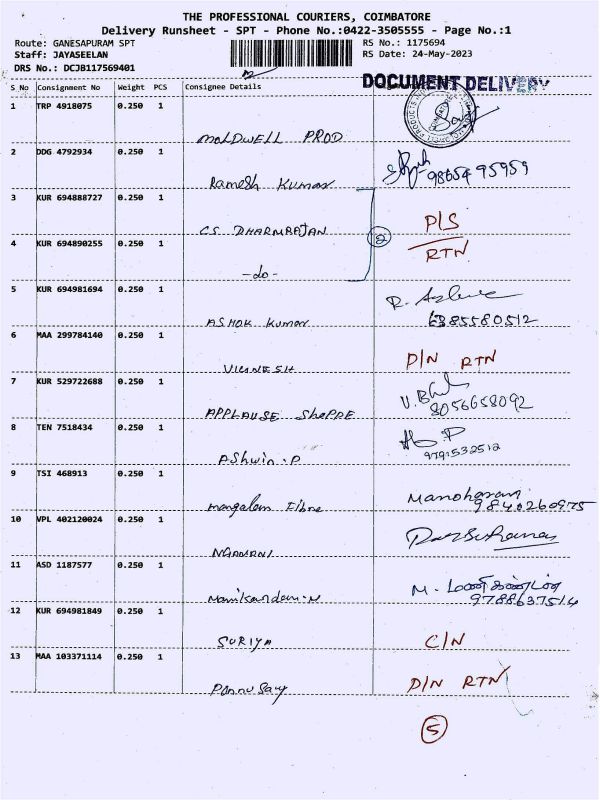 THE PROFESSIONAL COURIERS, COIMBATORE
Delivery Runsheet - SPT - Phone No.:0422-3505555 - Page No.:1
Route: GANESAPURAM SPT RS No.: 1175694
Staff: JAYASEELAN RS Date: 24-May-2023
DRS No.: DCJB117569401
DOCUMENT DELIVERY
S_No Consignment No Weight PCS Consignee Details
1 TRP 4918075 0.250 1
MOLDWELL PROD
2 DDG 4792934 0.250 1
Ramesh Kumar 98654 95959
3 KUR 694888727 0.250 1
CS DHARMRAJAN P/S
2 RTN
4 KUR 694890255 0.250 1
-do-
5 KUR 694981694 0.250 1
ASHOK Kumar 6385580512
6 MAA 299784140 0.250 1
VIGNESH D/N RTN
7 KUR 529722688 0.250 1
APPLAUSE Shoppe 8056658092
8 TEN 7518434 0.250 1
Ashwin.P 9791532512
9 TSI 468913 0.250 1
mangalam Fibre Manoharan
9840260975
10 VPL 402120024 0.250 1
11 ASD 1187577 0.250 1
Manikandan.M M. மணிகண்டன்
9788637514
12 KUR 694981849 0.250 1
SURIYA C/N
13 MAA 103371114 0.250 1
Ponnusamy D/N RTN
5